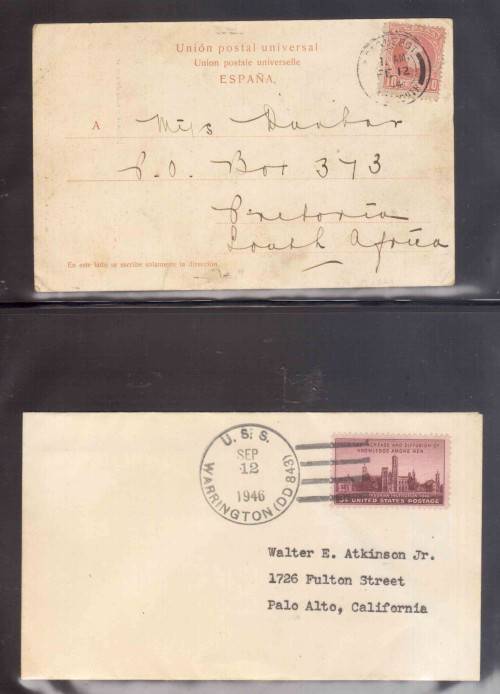 Unión postal universal
Union postale universelle
ESPAÑA.
A Miss Dunbar
P.O. Box 373
Pretoria
South Africa
En este lado se escribe solamente la dirección.
U.S.S.
SEP
12
1946
WARRINGTON (DD 843)
INCREASE AND DIFFUSION OF
KNOWLEDGE AMONG MEN
3¢ UNITED STATES POSTAGE
Walter E. Atkinson Jr.
1726 Fulton Street
Palo Alto, California